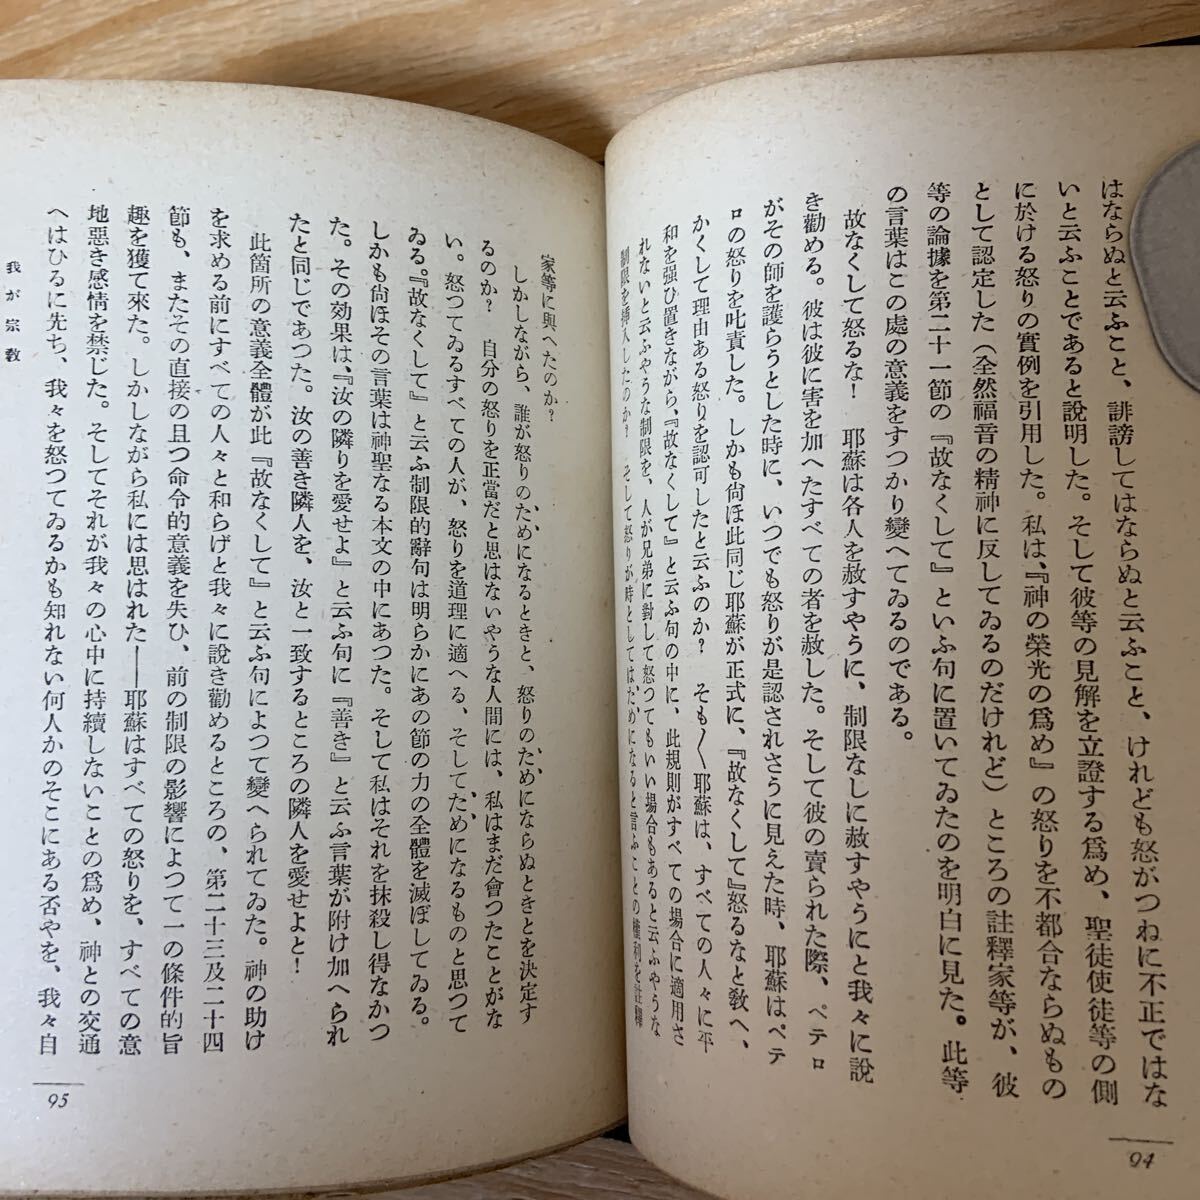 はならぬと云ふこと、誹謗してはならぬと云ふこと、けれども怒がつねに不正ではな
いと云ふことであると說明した。そして彼等の見解を立證する爲め、聖徒使徒等の側
に於ける怒りの實例を引用した。私は、『神の榮光の爲め』の怒りを不都合ならぬもの
として認定した（全然福音の精神に反してゐるのだけれど）ところの註釋家等が、彼
等の論據を第二十一節の『故なくして』といふ句に置いてゐたのを明白に見た。此等
の言葉はこの處の意義をすつかり變へてゐるのである。
故なくして怒るな！　耶蘇は各人を赦すやうに、制限なしに赦すやうにと我々に說
き勸める。彼は彼に害を加へたすべての者を赦した。そして彼の賣られた際、ペテロ
がその師を護らうとした時に、いつでも怒りが是認されさうに見えた時、耶蘇はペテ
ロの怒りを叱責した。しかも尙ほ此同じ耶蘇が正式に、『故なくして』怒るなと敎へ、
かくして理由ある怒りを認可したと云ふのか？　そも〱耶蘇は、すべての人々に平
和を强ひ置きながら、『故なくして』と云ふ句の中に、此規則がすべての場合に適用さ
れないと云ふやうな制限を、人が兄弟に對して怒つてもいい場合もあると云ふやうな
制限を挿入したのか？　そして怒りが時としては、ためになると言ふことの權利を註釋
94
家等に與へたのか？
しかしながら、誰が怒りのためになるときと、怒りのためにならぬときとを決定す
るのか？　自分の怒りを正當だと思はないやうな人間には、私はまだ會つたことがな
い。怒つてゐるすべての人が、怒りを道理に適へる、そしてためになるものと思つて
ゐる。『故なくして』と云ふ制限的辭句は明らかにあの節の力の全體を滅ぼしてゐる。
しかも尙ほその言葉は神聖なる本文の中にあつた。そして私はそれを抹殺し得なかつ
た。その効果は、『汝の隣りを愛せよ』と云ふ句に『善き』と云ふ言葉が附け加へられ
たと同じであつた。汝の善き隣人を、汝と一致するところの隣人を愛せよと！
此箇所の意義全體が此『故なくして』と云ふ句によつて變へられてゐた。神の助け
を求める前にすべての人々と和らげと我々に說き勸めるところの、第二十三及二十四
節も、またその直接の且つ命令的意義を失ひ、前の制限の影響によつて一の條件的旨
趣を獲て來た。しかしながら私には思はれた——耶蘇はすべての怒りを、すべての意
地惡き感情を禁じた。そしてそれが我々の心中に持續しないことの爲め、神との交通
へはひるに先ち、我々を怒つてゐるかも知れない何人かのそこにある否やを、我々自
我が宗敎
95